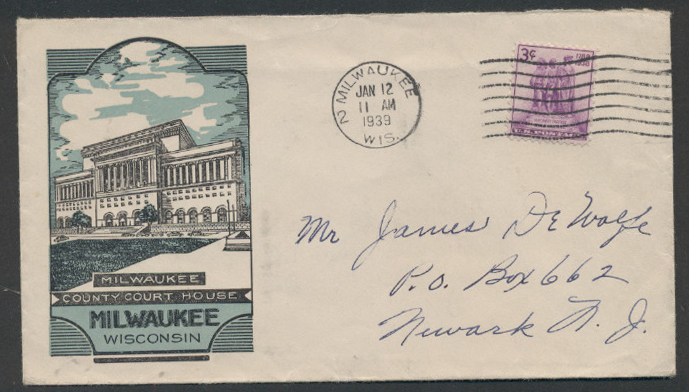 MILWAUKEE
COUNTY COURT HOUSE
MILWAUKEE
WISCONSIN
2 MILWAUKEE
JAN 12
11 AM
1939
WIS.
3¢
U.S. POSTAGE
Mr James DeWolfe
P.O. Box 662
Newark N. J.